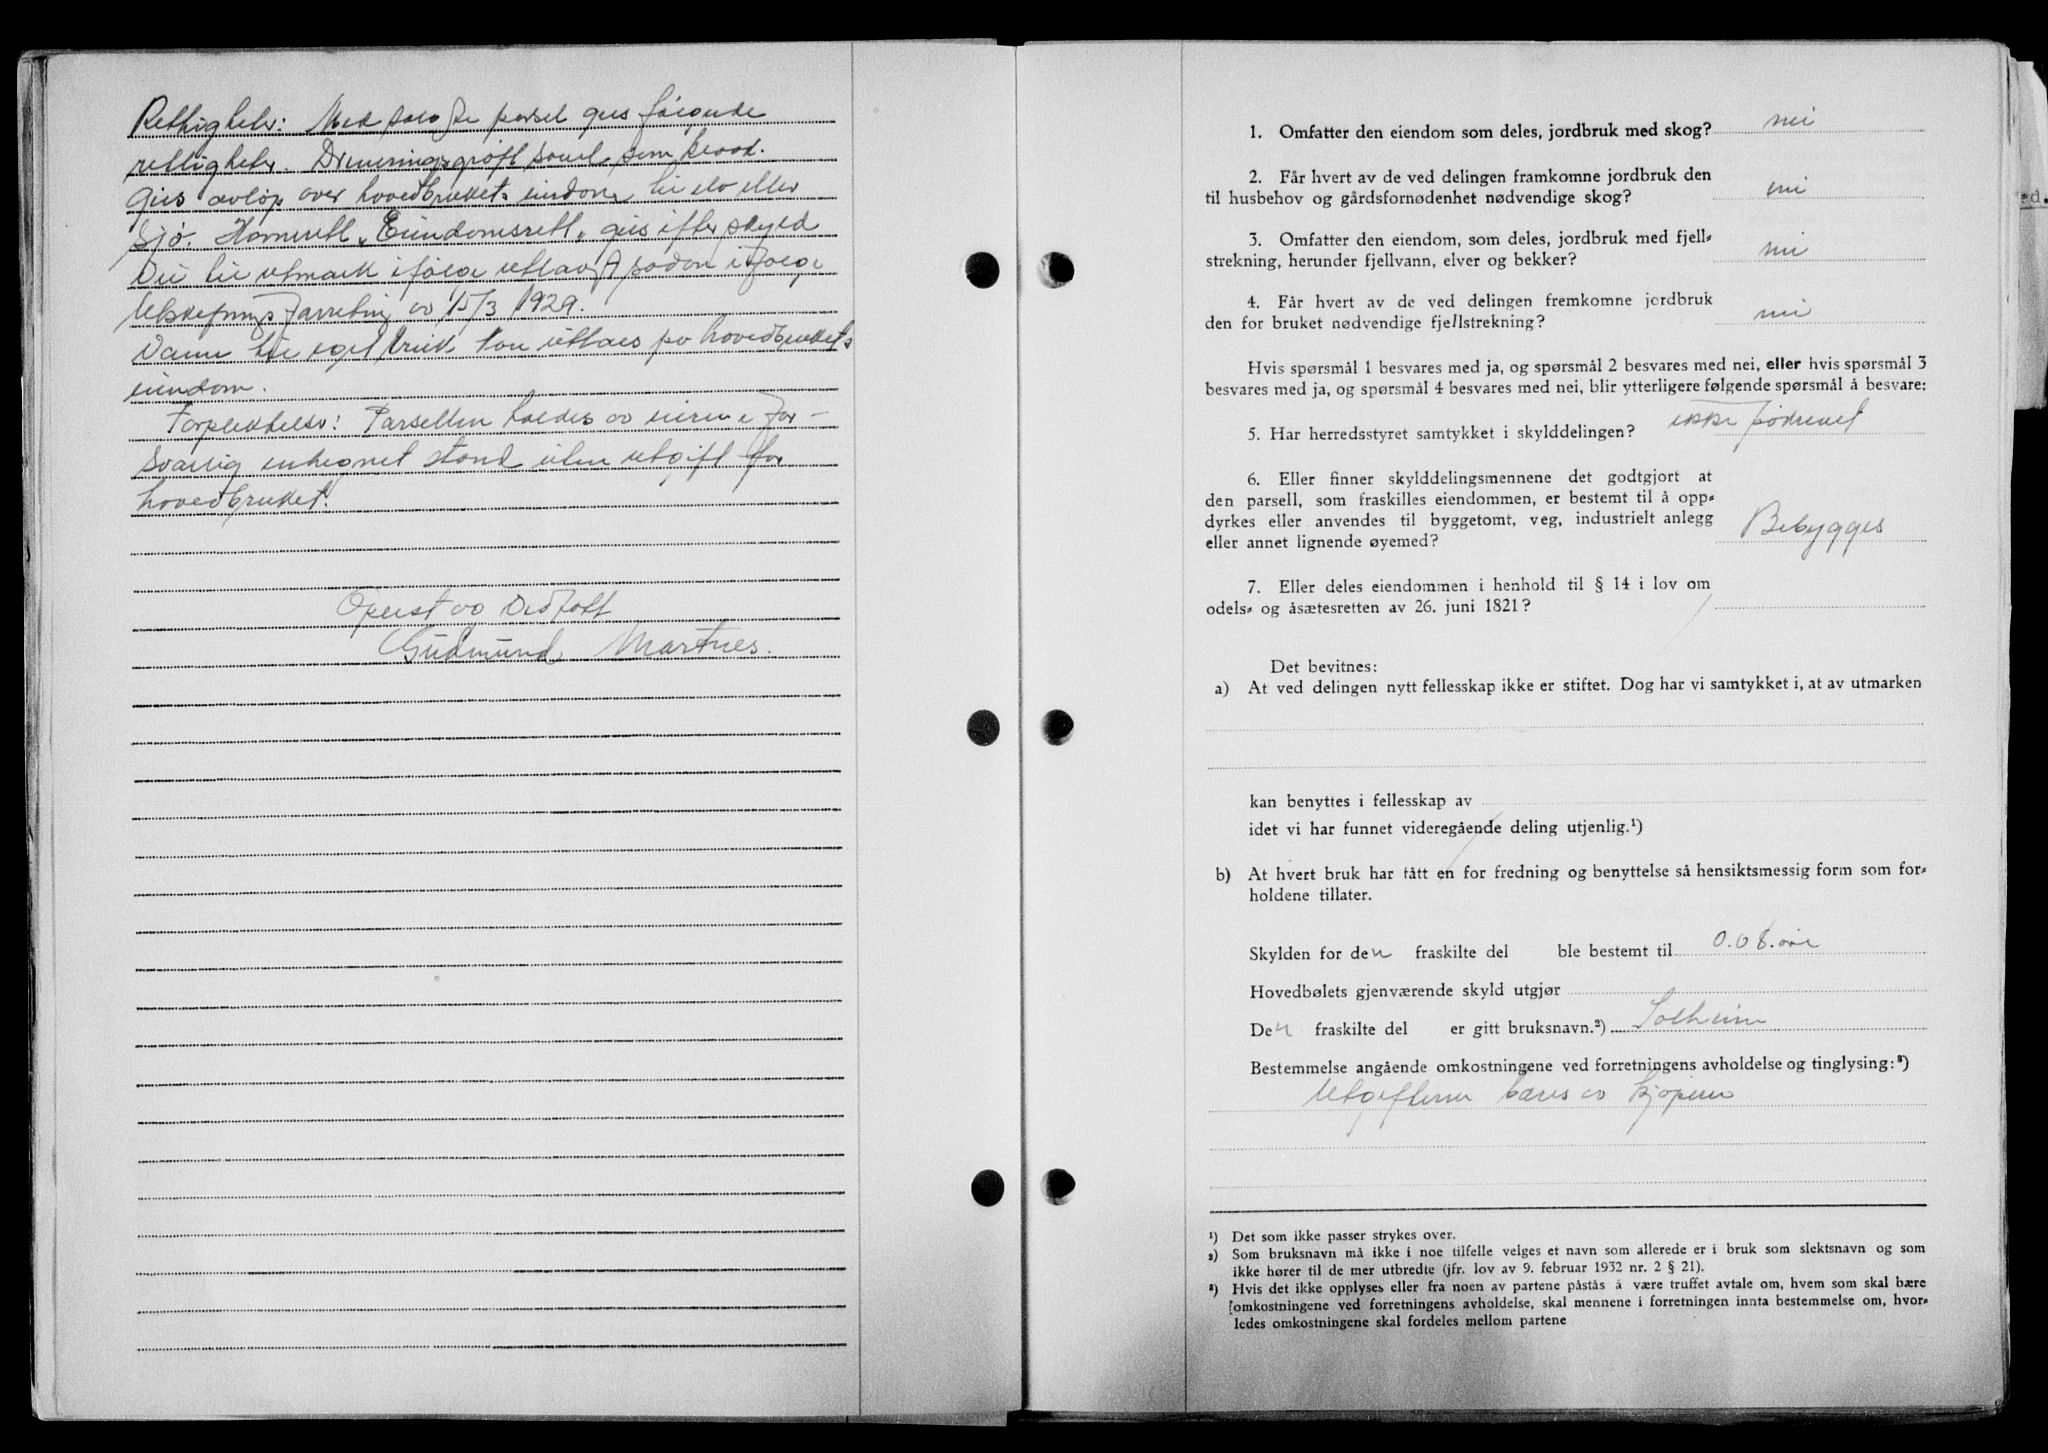 Rettigheter: Med solgte parsel gies følgende
rettigheter. Dreneringsgrøft samt
gies avløp over hovedbrukets eiendom til elv eller
Sjø. Havnerett "Eiendomsrett" gies efter skyld
Del til utmark ifølge utlagt sådan ifølge
Utskiftningsforretning av 15/3 1929.
Vann til eget bruk kan uttaes på hovedbrukets
eiendom.
Forpliktelser: Parsellen holdes av eieren i for-
svarlig inhegnet stand uten utgift for
hovedbruket.
Oplest og vedtatt
Gudmund Martnes.
1. Omfatter den eiendom som deles, jordbruk med skog? nei
2. Får hvert av de ved delingen framkomne jordbruk den
til husbehov og gårdsfornødenhet nødvendige skog? nei
3. Omfatter den eiendom, som deles, jordbruk med fjell-
strekning, herunder fjellvann, elver og bekker? nei
4. Får hvert av de ved delingen fremkomne jordbruk
den for bruket nødvendige fjellstrekning? nei
Hvis spørsmål 1 besvares med ja, og spørsmål 2 besvares med nei, eller hvis spørsmål 3
besvares med ja, og spørsmål 4 besvares med nei, blir ytterligere følgende spørsmål å besvare:
5. Har herredsstyret samtykket i skylddelingen? ikke påkrevet
6. Eller finner skylddelingsmennene det godtgjort at
den parsell, som fraskilles eiendommen, er bestemt til å opp-
dyrkes eller anvendes til byggetomt, veg, industrielt anlegg
eller annet lignende øyemed? Bebygges
7. Eller deles eiendommen i henhold til § 14 i lov om
odels- og åsætesretten av 26. juni 1821?
Det bevitnes:
a) At ved delingen nytt fellesskap ikke er stiftet. Dog har vi samtykket i, at av utmarken
kan benyttes i fellesskap av
idet vi har funnet videregående deling utjenlig.¹)
b) At hvert bruk har fått en for fredning og benyttelse så hensiktsmessig form som for-
holdene tillater.
Skylden for den fraskilte del ble bestemt til 0.08 øre
Hovedbølets gjenværende skyld utgjør
Den fraskilte del er gitt bruksnavn.²) Solheim
Bestemmelse angående omkostningene ved forretningens avholdelse og tinglysing:³)
Utgifterne bæres av kjøperen
¹) Det som ikke passer strykes over.
²) Som bruksnavn må ikke i noe tilfelle velges et navn som allerede er i bruk som slektsnavn og som
ikke hører til de mer utbredte (jfr. lov av 9. februar 1932 nr. 2 § 21).
³) Hvis det ikke opplyses eller fra noen av partene påstås å være truffet avtale om, hvem som skal bære
omkostningene ved forretningens avholdelse, skal mennene i forretningen innta bestemmelse om, hvor-
ledes omkostningene skal fordeles mellom partene